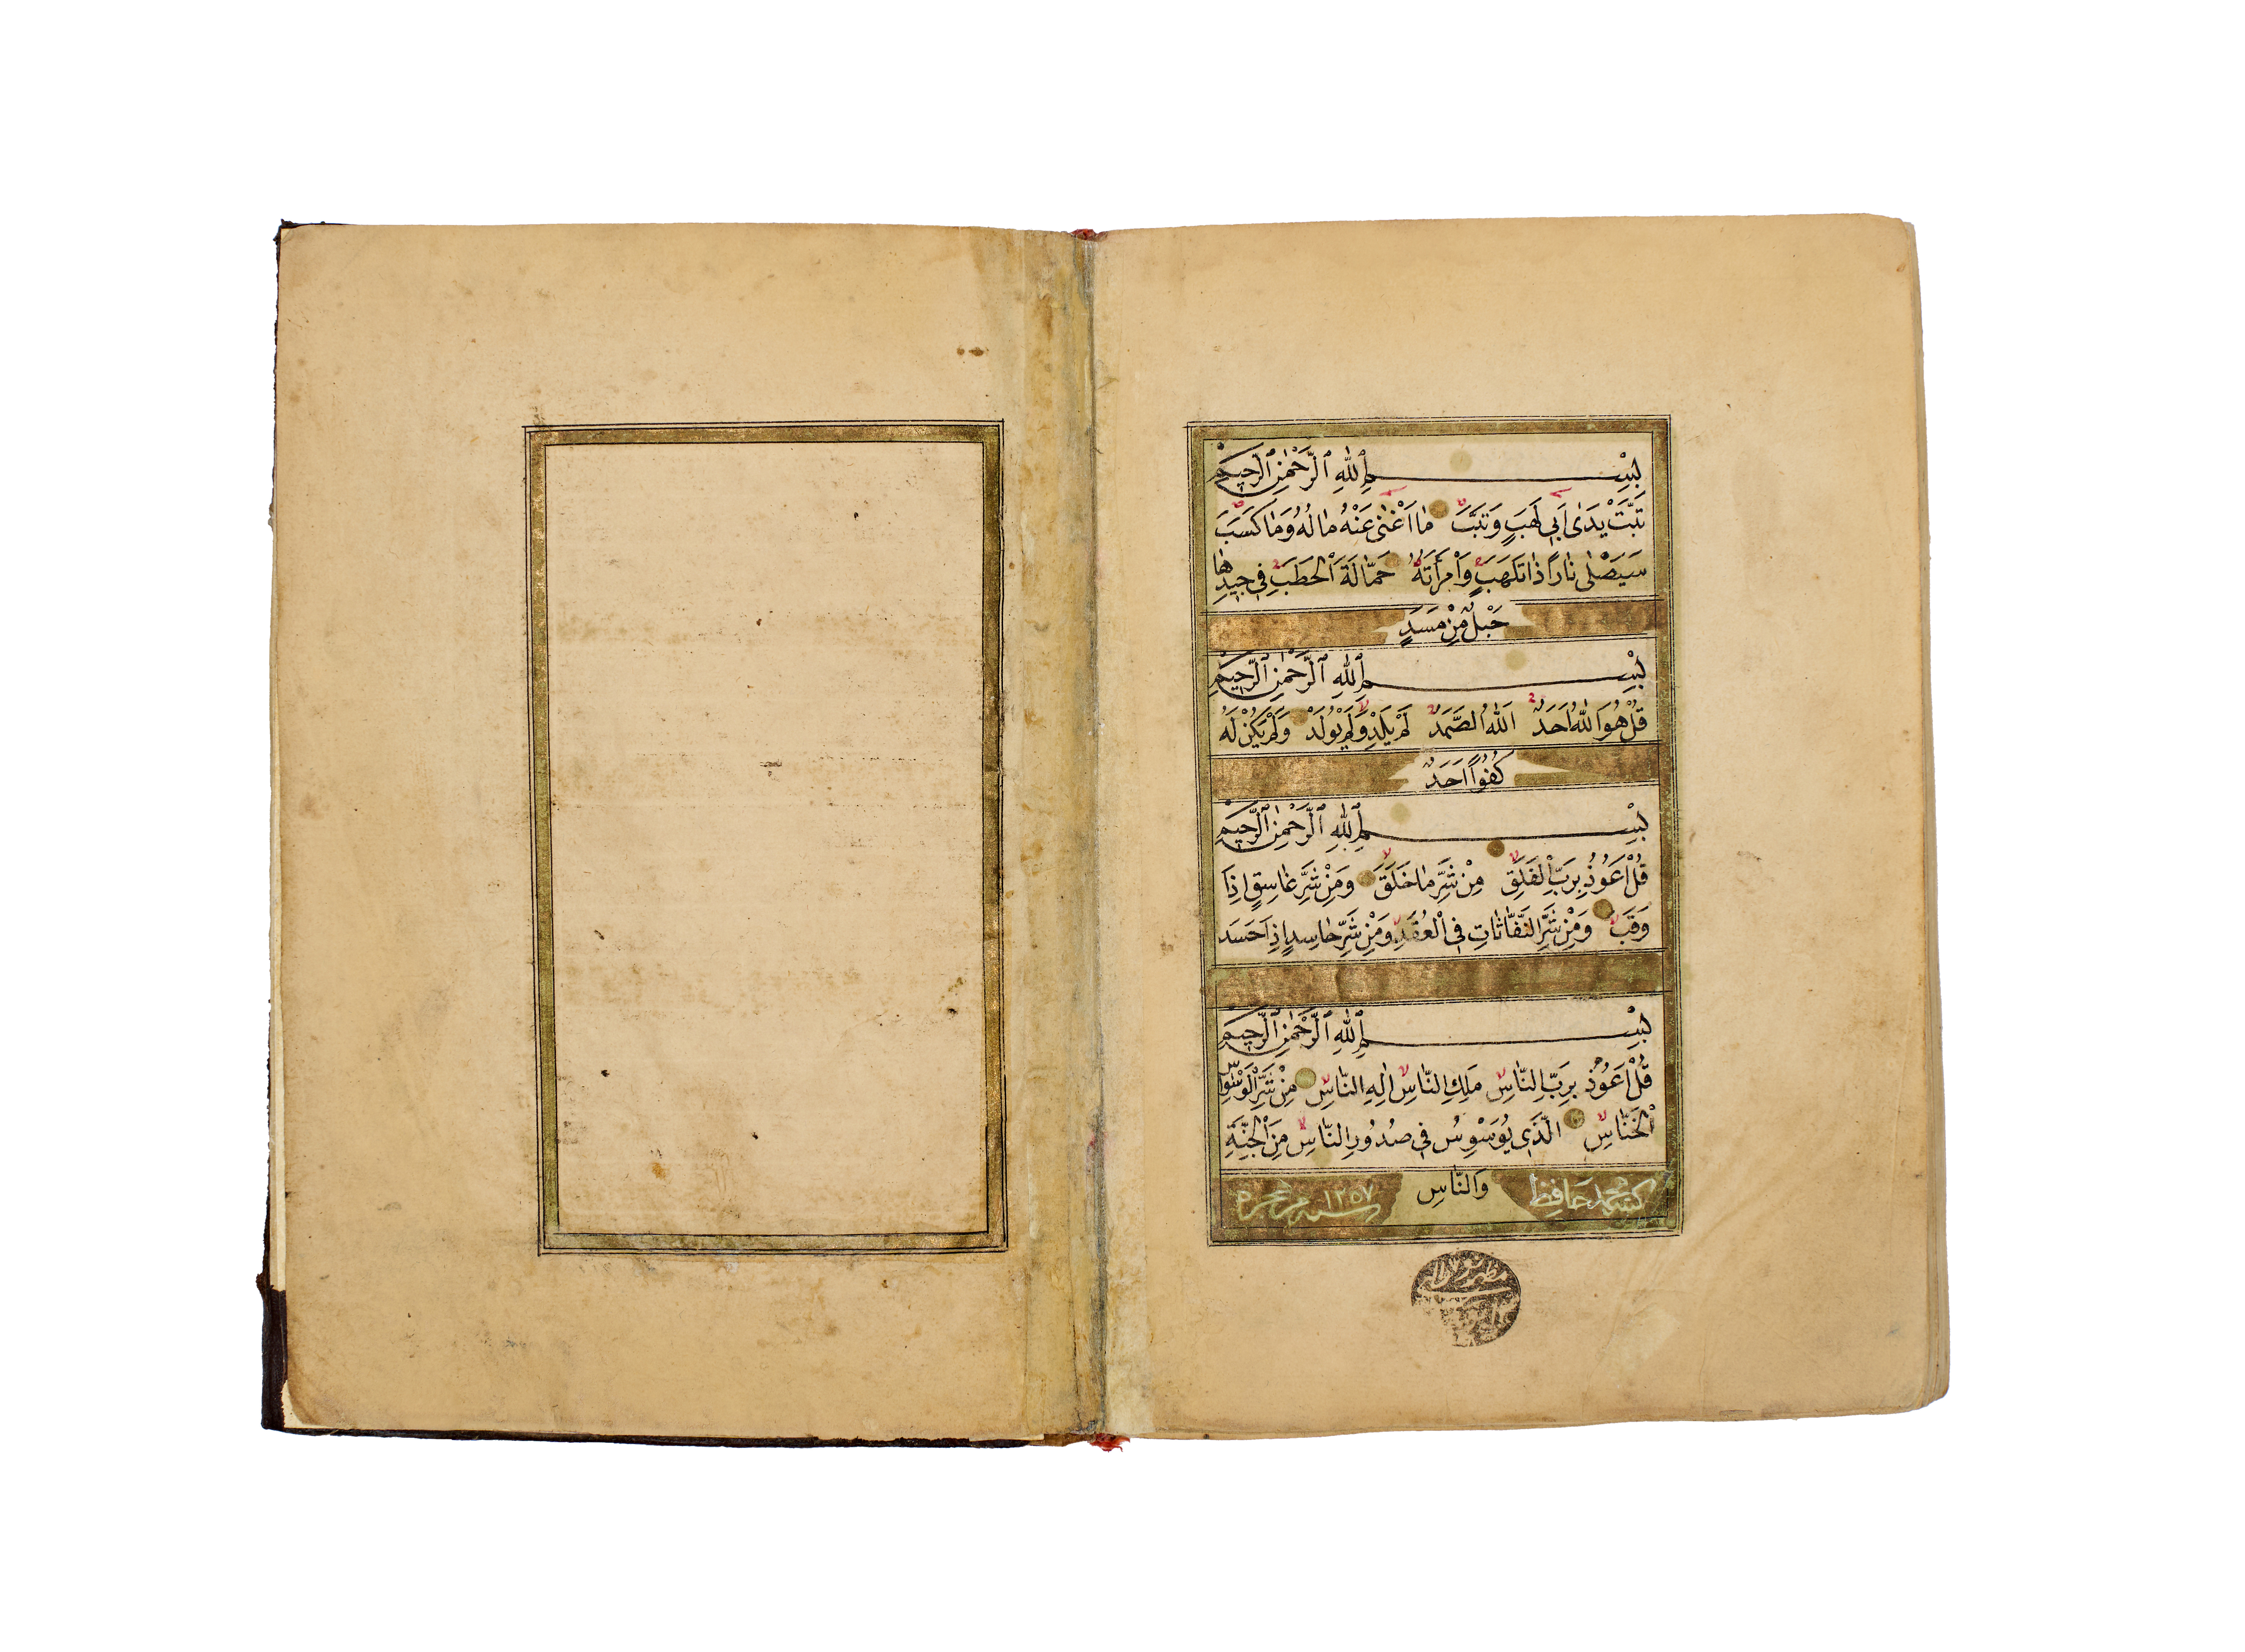 بِسْمِ اللهِ الرَّحْمٰنِ الرَّحِيمِ
تَبَّتْ يَدٰى اَبِى لَهَبٍ وَتَبَّ مٰا اَغْنٰى عَنْهُ مٰالُهُ وَمٰا كَسَبَ
سَيَصْلٰى نٰاراً ذٰاتَ لَهَبٍ وَامْرَأَتُهُ حَمّٰالَةَ الْحَطَبِ فِى جِيدِهٰا
حَبْلٌ مِنْ مَسَدٍ
بِسْمِ اللهِ الرَّحْمٰنِ الرَّحِيمِ
قُلْ هُوَ اللهُ اَحَدٌ اَللهُ الصَّمَدُ لَمْ يَلِدْ وَلَمْ يُولَدْ وَلَمْ يَكُنْ لَهُ
كُفُواً اَحَدٌ
بِسْمِ اللهِ الرَّحْمٰنِ الرَّحِيمِ
قُلْ اَعُوذُ بِرَبِّ الْفَلَقِ مِنْ شَرِّ مٰا خَلَقَ وَمِنْ شَرِّ غٰاسِقٍ اِذٰا
وَقَبَ وَمِنْ شَرِّ النَّفّٰاثٰاتِ فِى الْعُقَدِ وَمِنْ شَرِّ حٰاسِدٍ اِذٰا حَسَدَ
بِسْمِ اللهِ الرَّحْمٰنِ الرَّحِيمِ
قُلْ اَعُوذُ بِرَبِّ النّٰاسِ مَلِكِ النّٰاسِ اِلٰهِ النّٰاسِ مِنْ شَرِّ الْوَسْوٰاسِ
الْخَنّٰاسِ الَّذِى يُوَسْوِسُ فِى صُدُورِ النّٰاسِ مِنَ الْجِنَّةِ
وَالنّٰاسِ
كتبه محمد حافظ
سنه ١٢٥٧ هجره